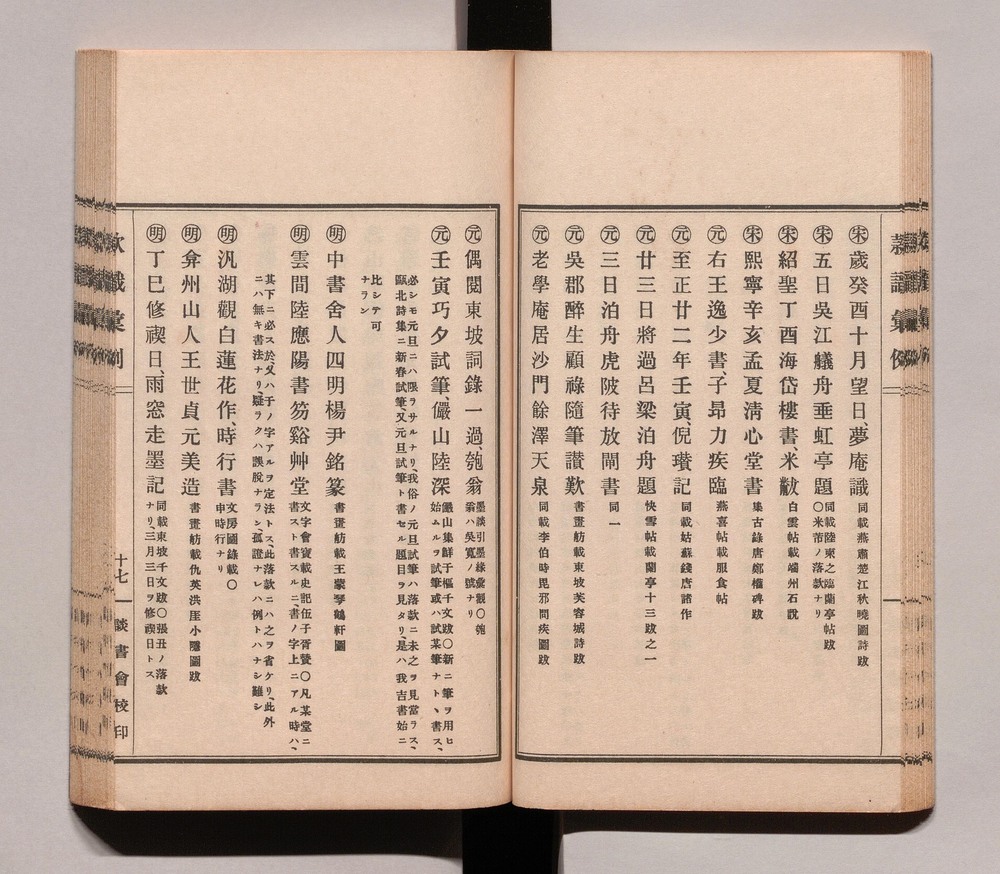 宋 歲癸酉十月望日、夢庵識 同載燕肅楚江秋曉圖詩跋
宋 五日吳江艤舟垂虹亭題 同載陸柬之臨蘭亭帖跋
〇米芾ノ落款ナリ
宋 紹聖丁酉海岱樓書、米黻 白雲帖載端州石說
宋 熙寧辛亥孟夏淸心堂書 集古錄唐鄭權碑跋
元 右王逸少書、子昂力疾臨 燕喜帖載服食帖
元 至正廿二年壬寅、倪瓚記 同載姑蘇錢唐諸作
元 廿三日將過呂梁泊舟題 快雪帖載蘭亭十三跋之一
元 三日泊舟虎陂待放閘書 同一
元 吳郡醉生顧祿隨筆讃歎 書畫舫載東坡芙容城詩跋
元 老學庵居沙門餘澤天泉 同載李伯時毘邪問疾圖跋
元 偶閱東坡詞錄一過、匏翁 墨談引墨緣彙觀〇匏
翁ハ吳寬ノ號ナリ
元 壬寅巧夕試筆、儼山陸深 儼山集鮮于樞千文跋〇新ニ筆ヲ用ヒ
始ムルヲ試筆或ハ試某筆ナトヽ書ス、
必シモ元旦ニハ限ラサルナリ、我俗ノ元旦試筆ハ落款ニ未之ヲ見當ラス、
甌北詩集ニ新春試筆、又元旦試筆ト書セル題目ヲ見タリ、是ハ我吉書始ニ
比シテ可
ナラン
明 中書舍人四明楊尹銘篆 書畫舫載王蒙琴鶴軒圖
明 雲間陸應陽書笏谿艸堂 文字會寶載史記伍子胥贊〇凡某堂ニ
書スト書スルニ、書ノ字上ニアル時ハ、
其下ニ必ス於又ハ于ノ字アルヲ定法トス、此落款ニハ之ヲ省ケリ、此外
ニハ無キ書法ナリ、疑ラクハ誤脫ナラン、孤證ナレハ例トハナシ難シ
明 汎湖觀白蓮花作、時行書 文房圖錄載〇
申時行ナリ
明 弇州山人王世貞元美造 書畫舫載仇英洪厓小隱圖跋
明 丁巳修禊日、雨窓走墨記 同載東坡千文跋〇張丑ノ落款
ナリ、三月三日ヲ修禊日トス
十七
談書會校印